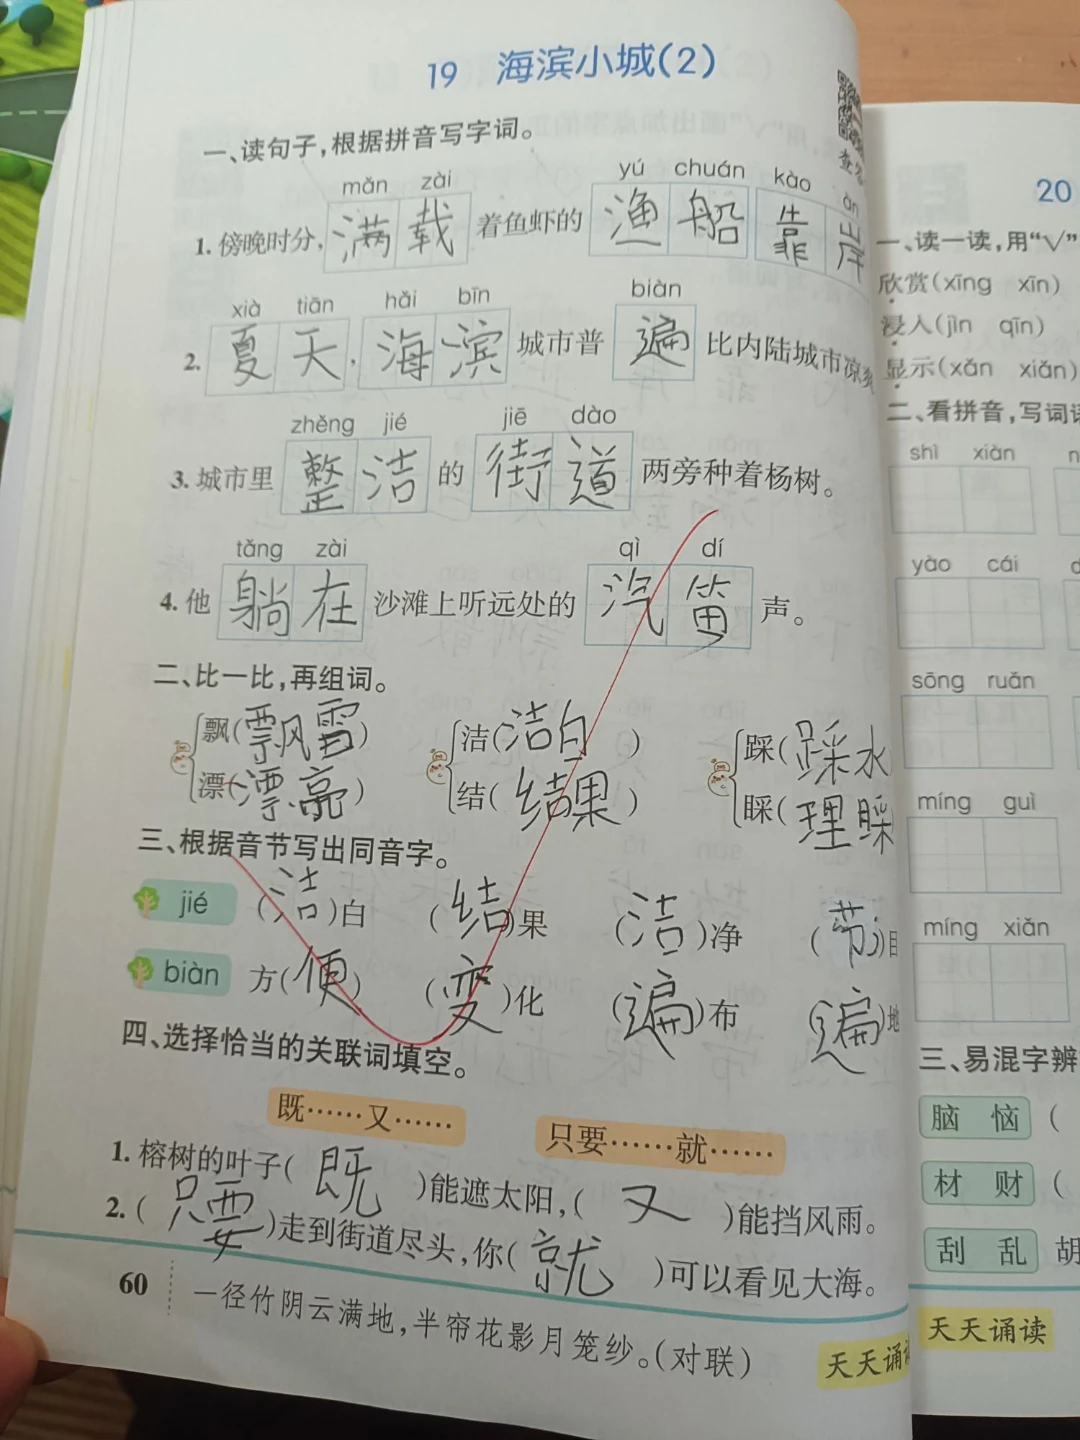 19 海滨小城(2)
一、读句子，根据拼音写字词。
mǎn zài yú chuán kào àn
1. 傍晚时分，满载着鱼虾的渔船靠岸
xià tiān hǎi bīn biàn
2. 夏天，海滨城市普遍比内陆城市凉爽
zhěng jié jiē dào
3. 城市里整洁的街道两旁种着杨树。
tǎng zài qì dí
4. 他躺在沙滩上听远处的汽笛声。
二、比一比，再组词。
飘(飘雪) 洁(洁白) 踩(踩水
漂(漂亮) 结(结果) 睬(理睬
三、根据音节写出同音字。
jié (洁)白 (结)果 (洁)净 (节)目
biàn 方(便) (变)化 (遍)布 (遍)地
四、选择恰当的关联词填空。
既……又…… 只要……就……
1. 榕树的叶子(既)能遮太阳，(又)能挡风雨。
2. (只要)走到街道尽头，你(就)可以看见大海。
60 一径竹阴云满地，半帘花影月笼纱。(对联)
天天诵
20
一、读一读，用“√”
欣赏(xīng xīn)
浸入(jìn qīn)
显示(xǎn xiǎn)
二、看拼音，写词语
shì xiàn
yào cái
sōng ruǎn
míng guì
míng xiǎn
三、易混字辨
脑 恼 (
材 财 (
刮 乱 胡
天天诵读